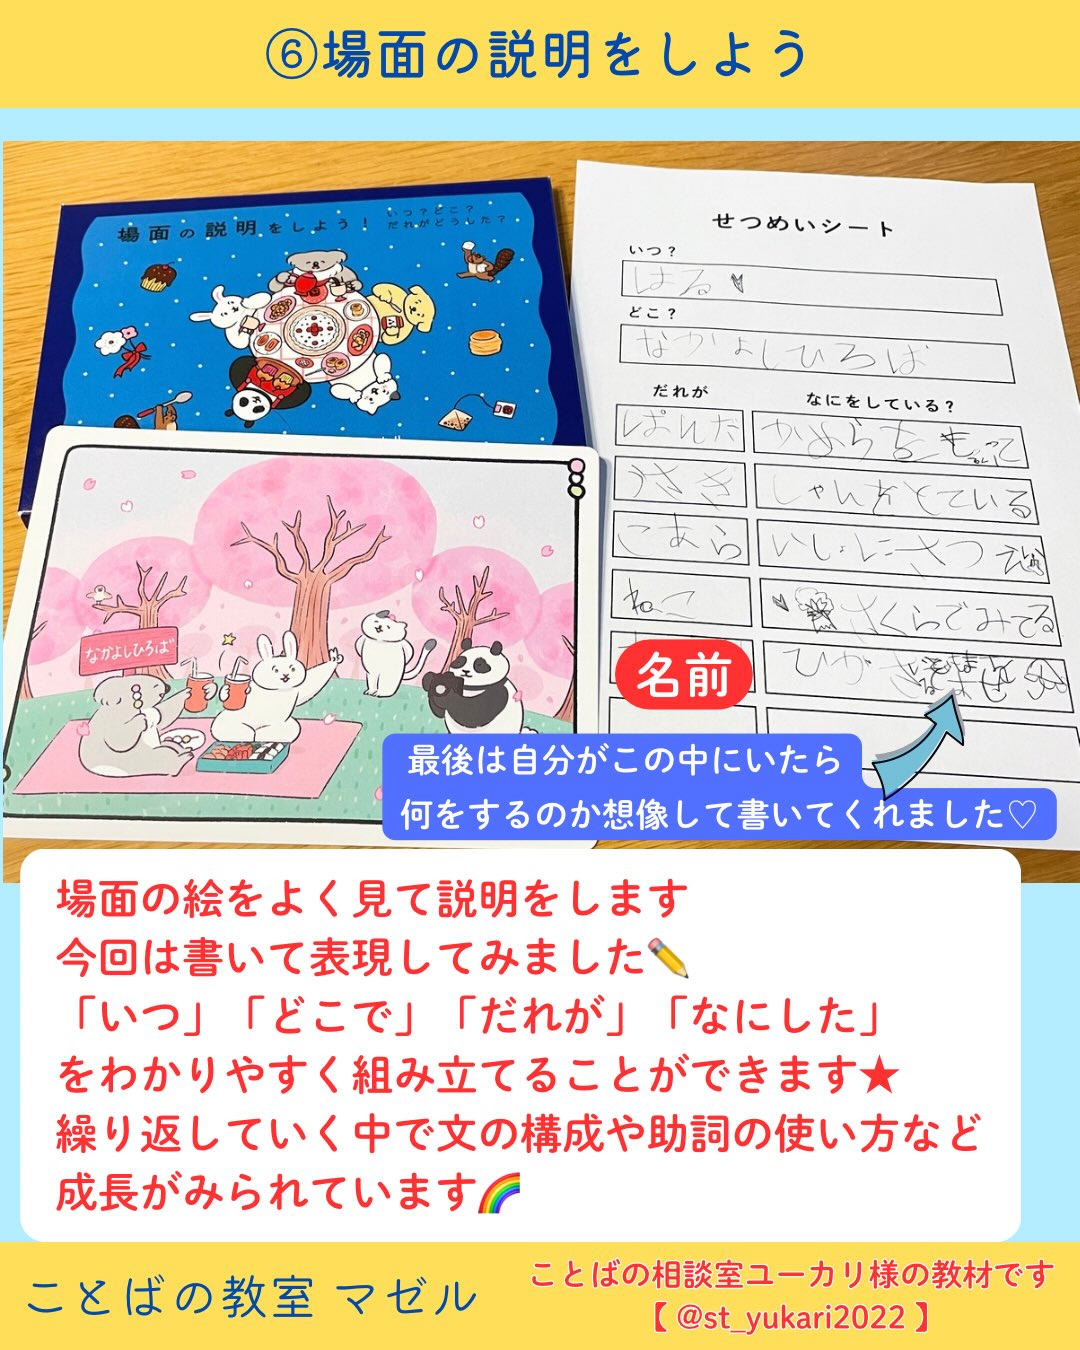 ⑥場面の説明をしよう
場面の説明をしよう！
いつ？どこ？
だれがどうした？
せつめいシート
いつ？
はる
どこ？
なかよしひろば
だれが
なにをしている？
ぱんだ
かめらをもって
うさき
こあら
ねこ
さくらでみてる
なかよしひろば
名前
最後は自分がこの中にいたら
何をするのか想像して書いてくれました♡
場面の絵をよく見て説明をします
今回は書いて表現してみました✏️
「いつ」「どこで」「だれが」「なにした」
をわかりやすく組み立てることができます★
繰り返していく中で文の構成や助詞の使い方など
成長がみられています🌈
ことばの教室 マゼル
ことばの相談室ユーカリ様の教材です
【 @st_yukari2022 】